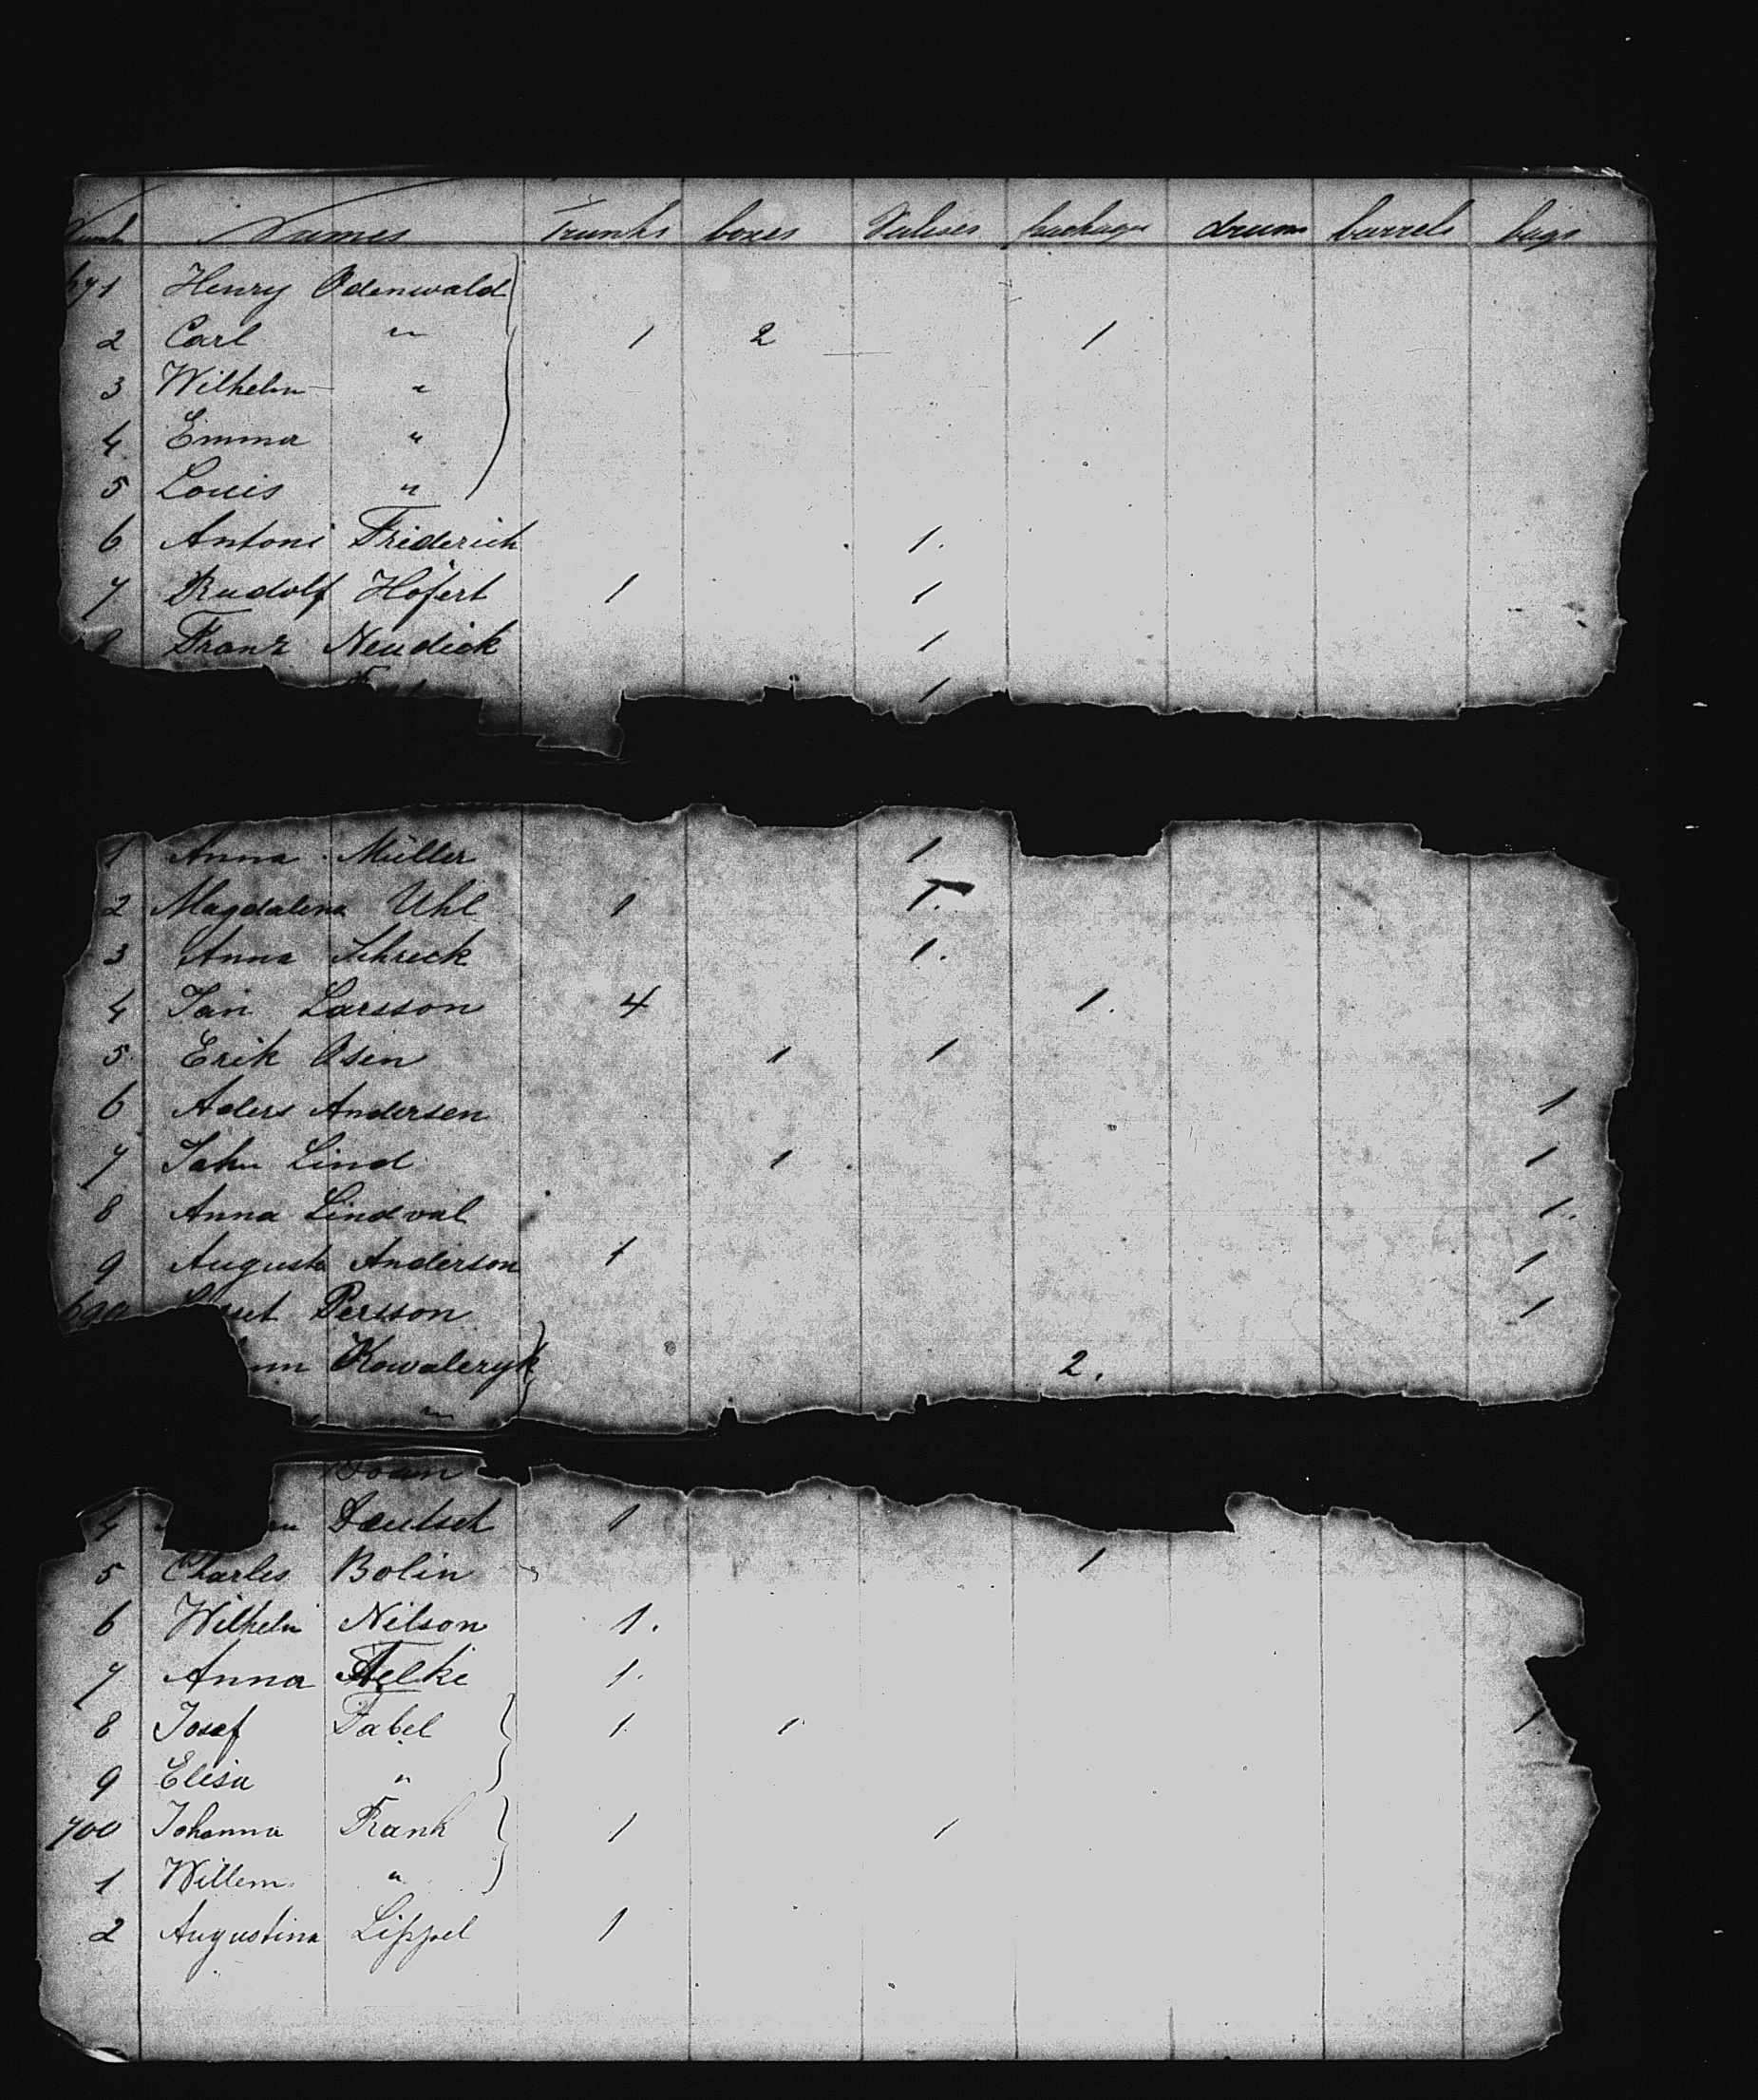 Names Trunks boxes Valises packages drums barrels bags
671 Henry Odenwald
2 Carl " 1 2 1
3 Wilhelm "
4 Emma "
5 Louis "
6 Antoni Friderich 1.
7 Rudolf Hofert 1 1
8 Franz Neudick 1
1
1 Anna Müller 1
2 Magdalena Uhl 1 1.
3 Anna Schreck 1.
4 Jan Larsson 4 1.
5 Erik Osen 1 1
6 Aders Andersen 1
7 John Lind 1 1
8 Anna Lindval 1.
9 Augusta Anderson 1 1
690 Persson 1
Kowalczyk 2.
"
4 Deutsch 1
5 Charles Bolin 1
6 Wilhelm Nilson 1.
7 Anna 1.
8 Josef Fabel 1. 1 1.
9 Elisa "
700 Johanna Frank 1 1
1 Willem "
2 Augustina Lippel 1